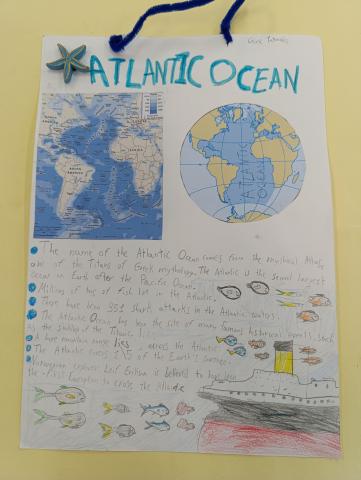 ATLANTIC OCEAN
NORTH AMERICA
SOUTH AMERICA
AFRICA
ATLANTIC OCEAN
The name of the Atlantic Ocean comes from the mythical Atlas
one of the Titans of Greek mythology. The Atlantic is the second largest
ocean on Earth after the Pacific Ocean.
Millions of of fish live in the Atlantic.
There have been attacks in the Atlantic waters.
The Atlantic Ocean has been the site of many famous historical events, such
as the sinking of the Titanic
A huge mountain range lies across the Atlantic
The Atlantic covers 1/5 of the Earth's surface.
Norwegian explorer Leif Erikson is believed to have been
the first European to cross the Atlantic